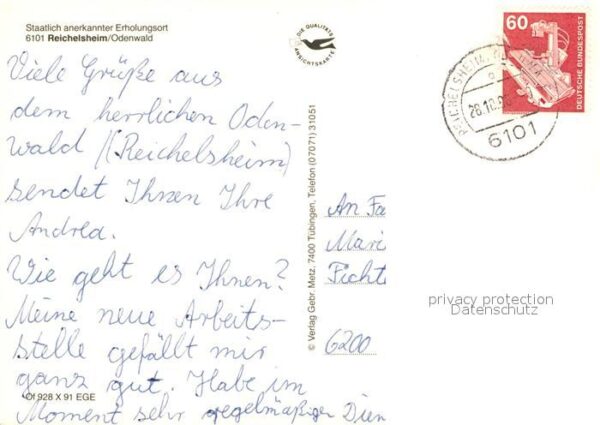 Staatlich anerkannter Erholungsort
6101 Reichelsheim/Odenwald
DIE QUALITÄTS
ANSICHTSKARTE
60
DEUTSCHE BUNDESPOST
REICHELSHEIM
26.10.
6101
Viele Grüße aus
dem herrlichen Oden-
wald (Reichelsheim)
sendet Ihnen Ihre
Andrea.
Wie geht es Ihnen?
Meine neue Arbeits-
stelle gefällt mir
ganz gut. Habe im
Moment sehr regelmäßigen Dien
Of 928 X 91 EGE
© Verlag Gebr. Metz. 7400 Tübingen, Telefon (07071) 31051
An Fa
Mari
Fichte
6200
privacy protection
Datenschutz